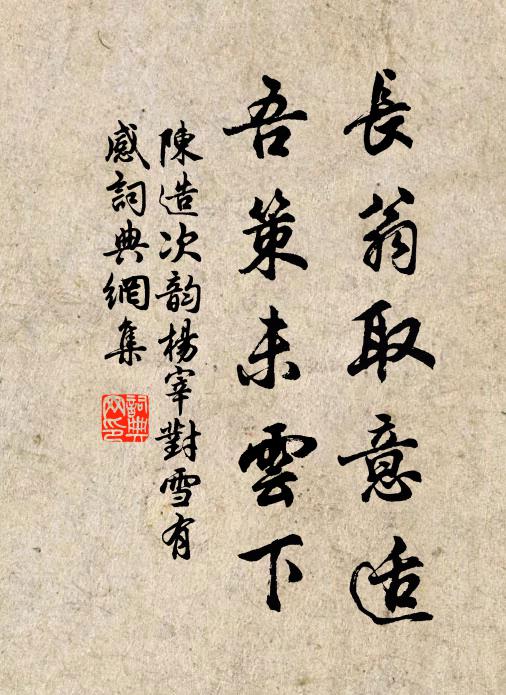 長翁取意适
吾策未雲下
陳造次韵楊宰對雪有
感詞典網集
詞典网印